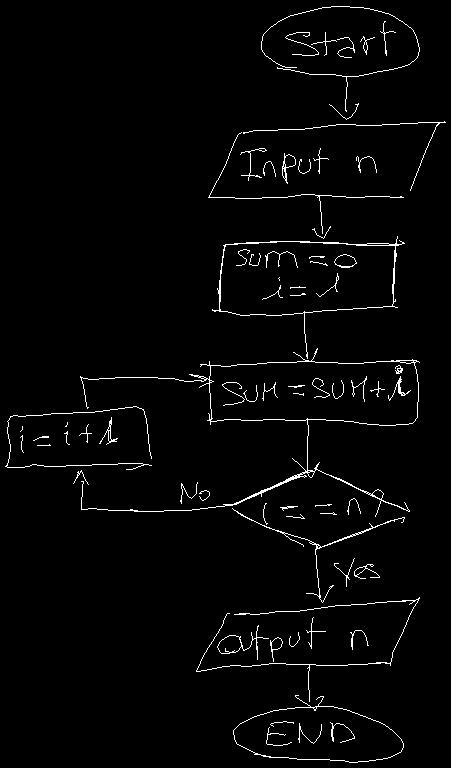 Start
Input n
sum = 0
i = 1
SUM = SUM + i
i = i + 1
No
i == n ?
Yes
output n
END